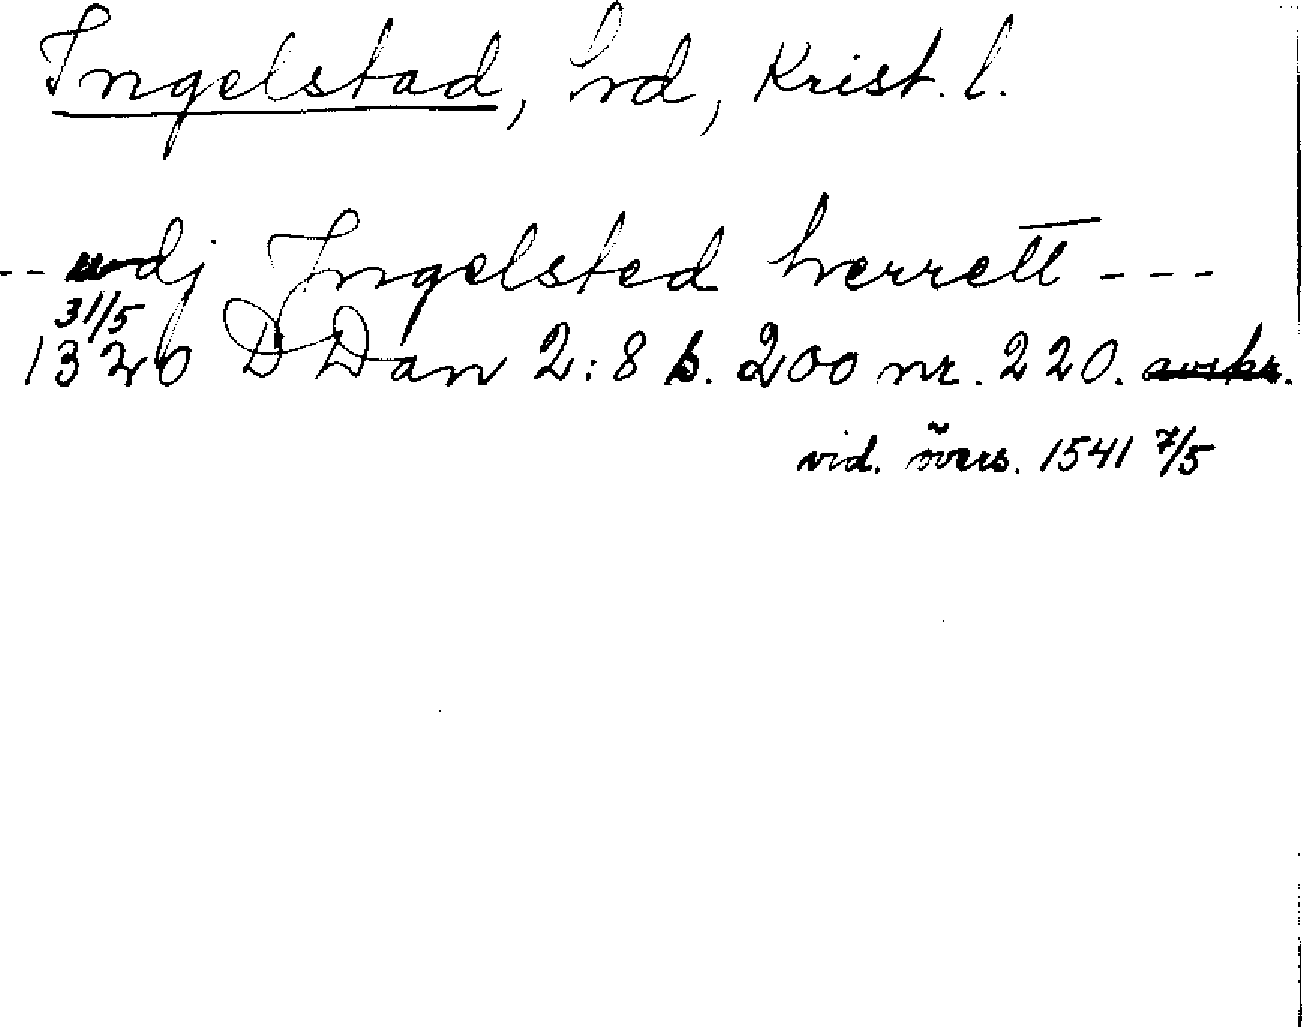 Ingelstad, hd, Krist. l.
-- udj Ingelsted herrett ---
31/5
1320 D Dan 2:8 s. 200 nr. 220. avskr.
vid. övers. 1541 7/5